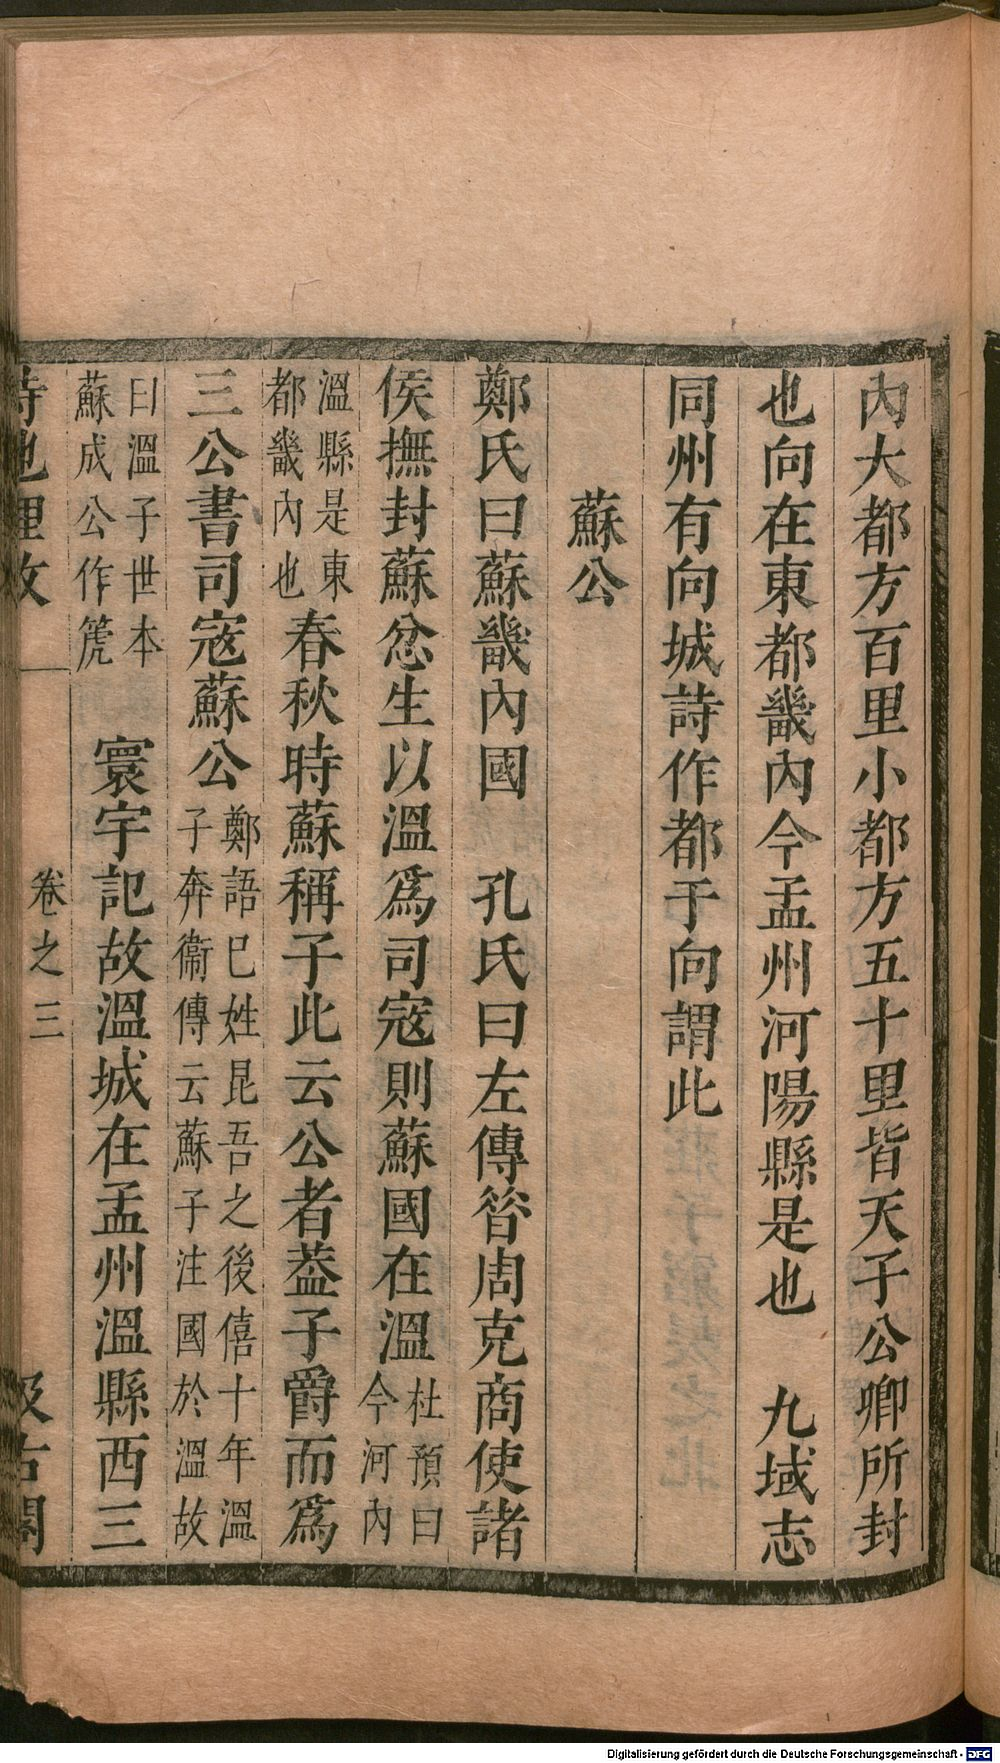 內大都方百里小都方五十里皆天子公卿所封
也向在東都畿內今孟州河陽縣是也　九域志
同州有向城詩作都于向謂此
蘇公
鄭氏曰蘇畿內國　孔氏曰左傳昝周克商使諸
侯撫封蘇忿生以溫爲司寇則蘇國在溫杜預曰今河內
溫縣是東都畿內也春秋時蘇稱子此云公者葢子爵而爲
三公書司寇蘇公鄭語巳姓昆吾之後僖十年溫子奔衞傳云蘇子注國於溫故
曰溫子世本蘇成公作箎　寰宇記故溫城在孟州溫縣西三
詩地理攷
卷之三
汲古閣
Digitalisierung gefördert durch die Deutsche Forschungsgemeinschaft - DFG